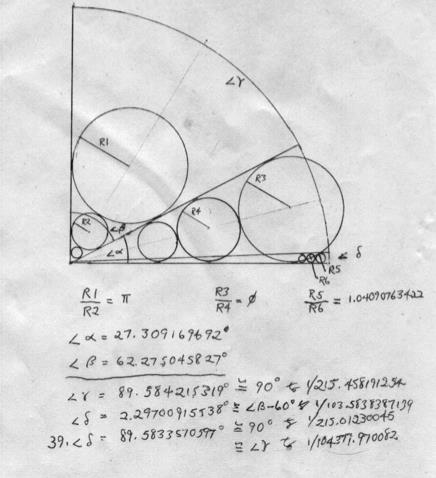 ∠γ
R1
R3
R2
∠β
R4
∠α
∠ δ
R5
R6
R1/R2 = π R3/R4 = φ R5/R6 = 1.04090763422
∠α = 27.309169692°
∠β = 62.275045827°
∠γ = 89.584215319° ≅ 90° to 1/215.458191254
∠δ = 2.29700915538° ≅ ∠β-60° to 1/103.5838387139
39.∠δ = 89.5833570597° ≅ 90° to 1/215.01230045
≅ ∠γ to 1/104377.970082